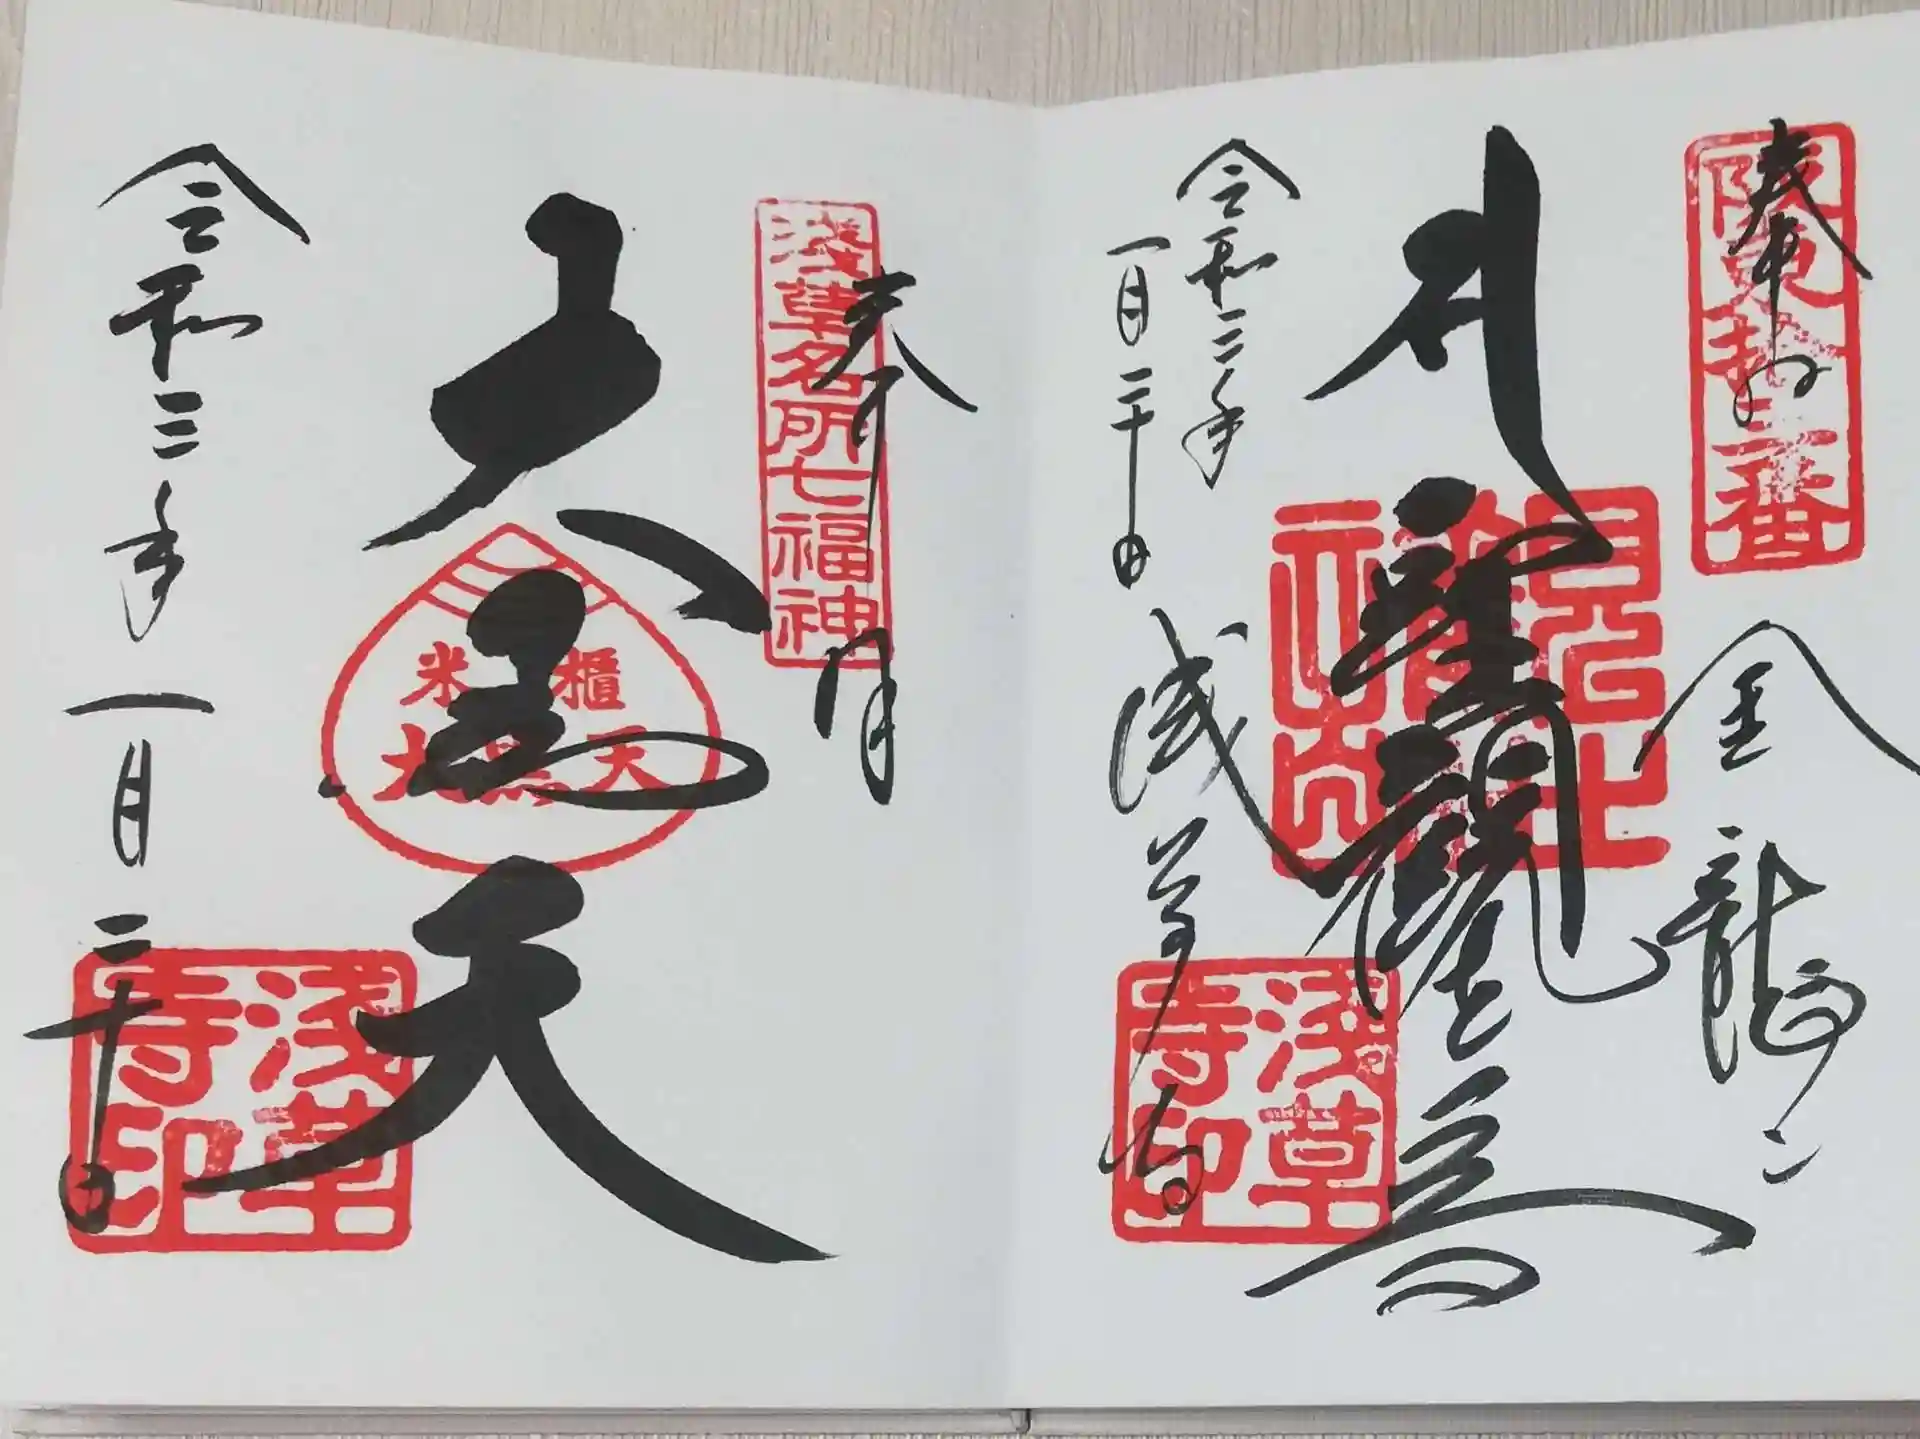 奉拝
坂東拾三番
金龍山
聖観世音
浅草寺
淺草寺印
令和三年
一月二十日
奉拝
淺草名所七福神
大黒天
米櫃
大黒天
令和三年一月二十日
淺草寺印